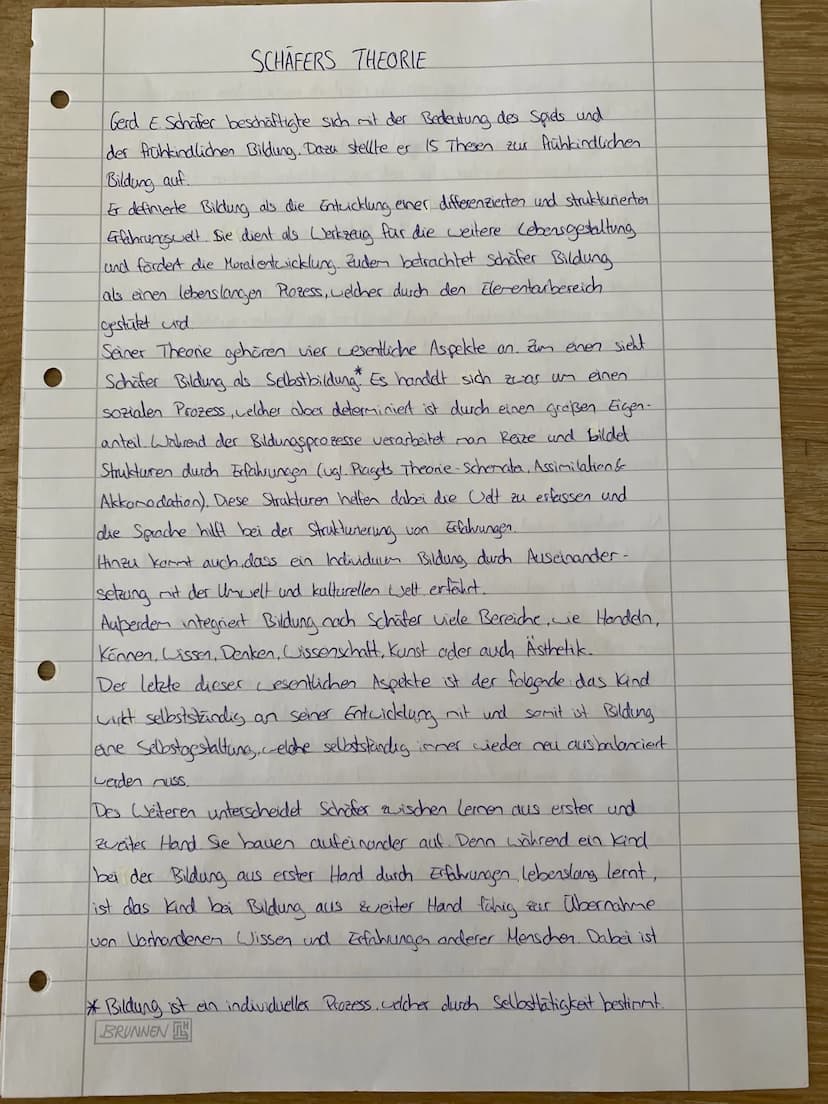 SCHÄFERS THEORIE
Gerd E. Schäfer beschäftigte sich mit der Bedeutung des Spiels und
der frühkindlichen Bildung. Dazu stellte er 15 Thesen zur frühkindlichen
Bildung auf.
Er definierte Bildung als die Entwicklung einer differenzierten und strukturierten
Erfahrungswelt. Sie dient als Werkzeug für die weitere Lebensgestaltung
und fördert die Moralentwicklung. Zudem betrachtet Schäfer Bildung
als einen lebenslangen Prozess, welcher durch den Elementarbereich
gestützt wird.
Seiner Theorie gehören vier wesentliche Aspekte an. Zum einen sieht
Schäfer Bildung als Selbstbildung.* Es handelt sich zwar um einen
sozialen Prozess, welcher aber determiniert ist durch einen großen Eigen-
anteil. Während der Bildungsprozesse verarbeitet man Reize und bildet
Strukturen durch Erfahrungen (vgl. Piagets Theorie - Schemata, Assimilation &
Akkomodation). Diese Strukturen helfen dabei die Welt zu erfassen und
die Sprache hilft bei der Strukturierung von Erfahrungen.
Hinzu kommt auch, dass ein Individuum Bildung durch Auseinander-
setzung mit der Umwelt und kulturellen Welt erfährt.
Außerdem integriert Bildung nach Schäfer viele Bereiche, wie Handeln,
Können, Wissen, Denken, Wissenschaft, Kunst oder auch Ästhetik.
Der letzte dieser wesentlichen Aspekte ist der folgende: das Kind
wirkt selbstständig an seiner Entwicklung mit und somit ist Bildung
eine Selbstgestaltung, welche selbstständig immer wieder neu ausbalanciert
werden muss.
Des Weiteren unterscheidet Schäfer zwischen lernen aus erster und
zweiter Hand. Sie bauen aufeinander auf. Denn während ein Kind
bei der Bildung aus erster Hand durch Erfahrungen lebenslang lernt,
ist das Kind bei Bildung aus zweiter Hand fähig zur Übernahme
von Vorhandenen Wissen und Erfahrungen anderer Menschen. Dabei ist
* Bildung ist ein individueller Prozess, welcher durch Selbsttätigkeit bestimmt.
BRUNNEN